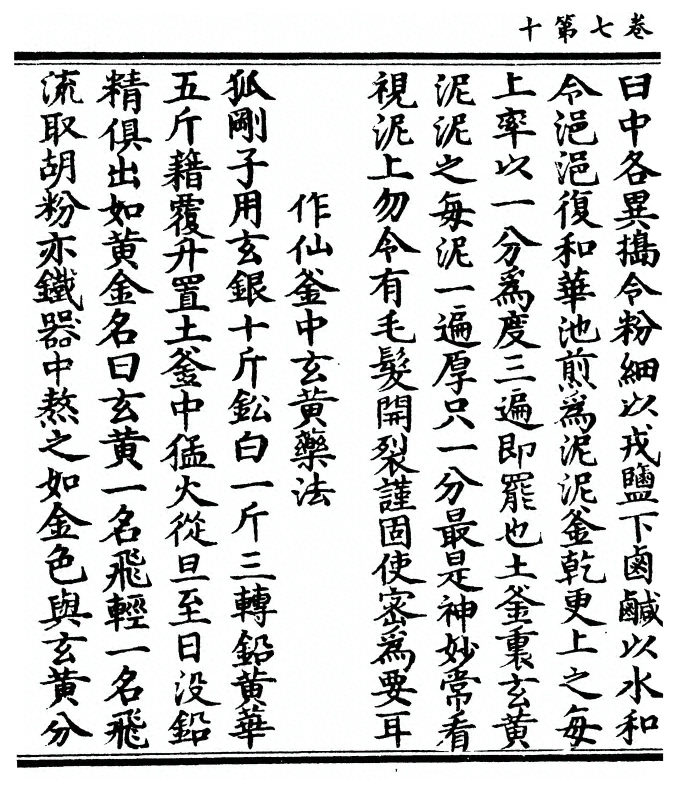 卷七第十
臼中各異擣令粉細以戎鹽下鹵鹹以水和
令浥浥復和華池煎爲泥泥釜乾更上之每
上率以一分爲度三遍即罷也土釜裏玄黄
泥泥之每泥一遍厚只一分最是神妙常看
視泥上勿令有毛髮開裂謹固使密爲要耳
作仙釜中玄黄藥法
狐剛子用玄銀十斤鈆白一斤三轉鉛黄華
五斤藉覆升置土釜中猛火從旦至日没鉛
精俱出如黄金名曰玄黄一名飛輕一名飛
流取胡粉亦鐵器中熬之如金色與玄黄分